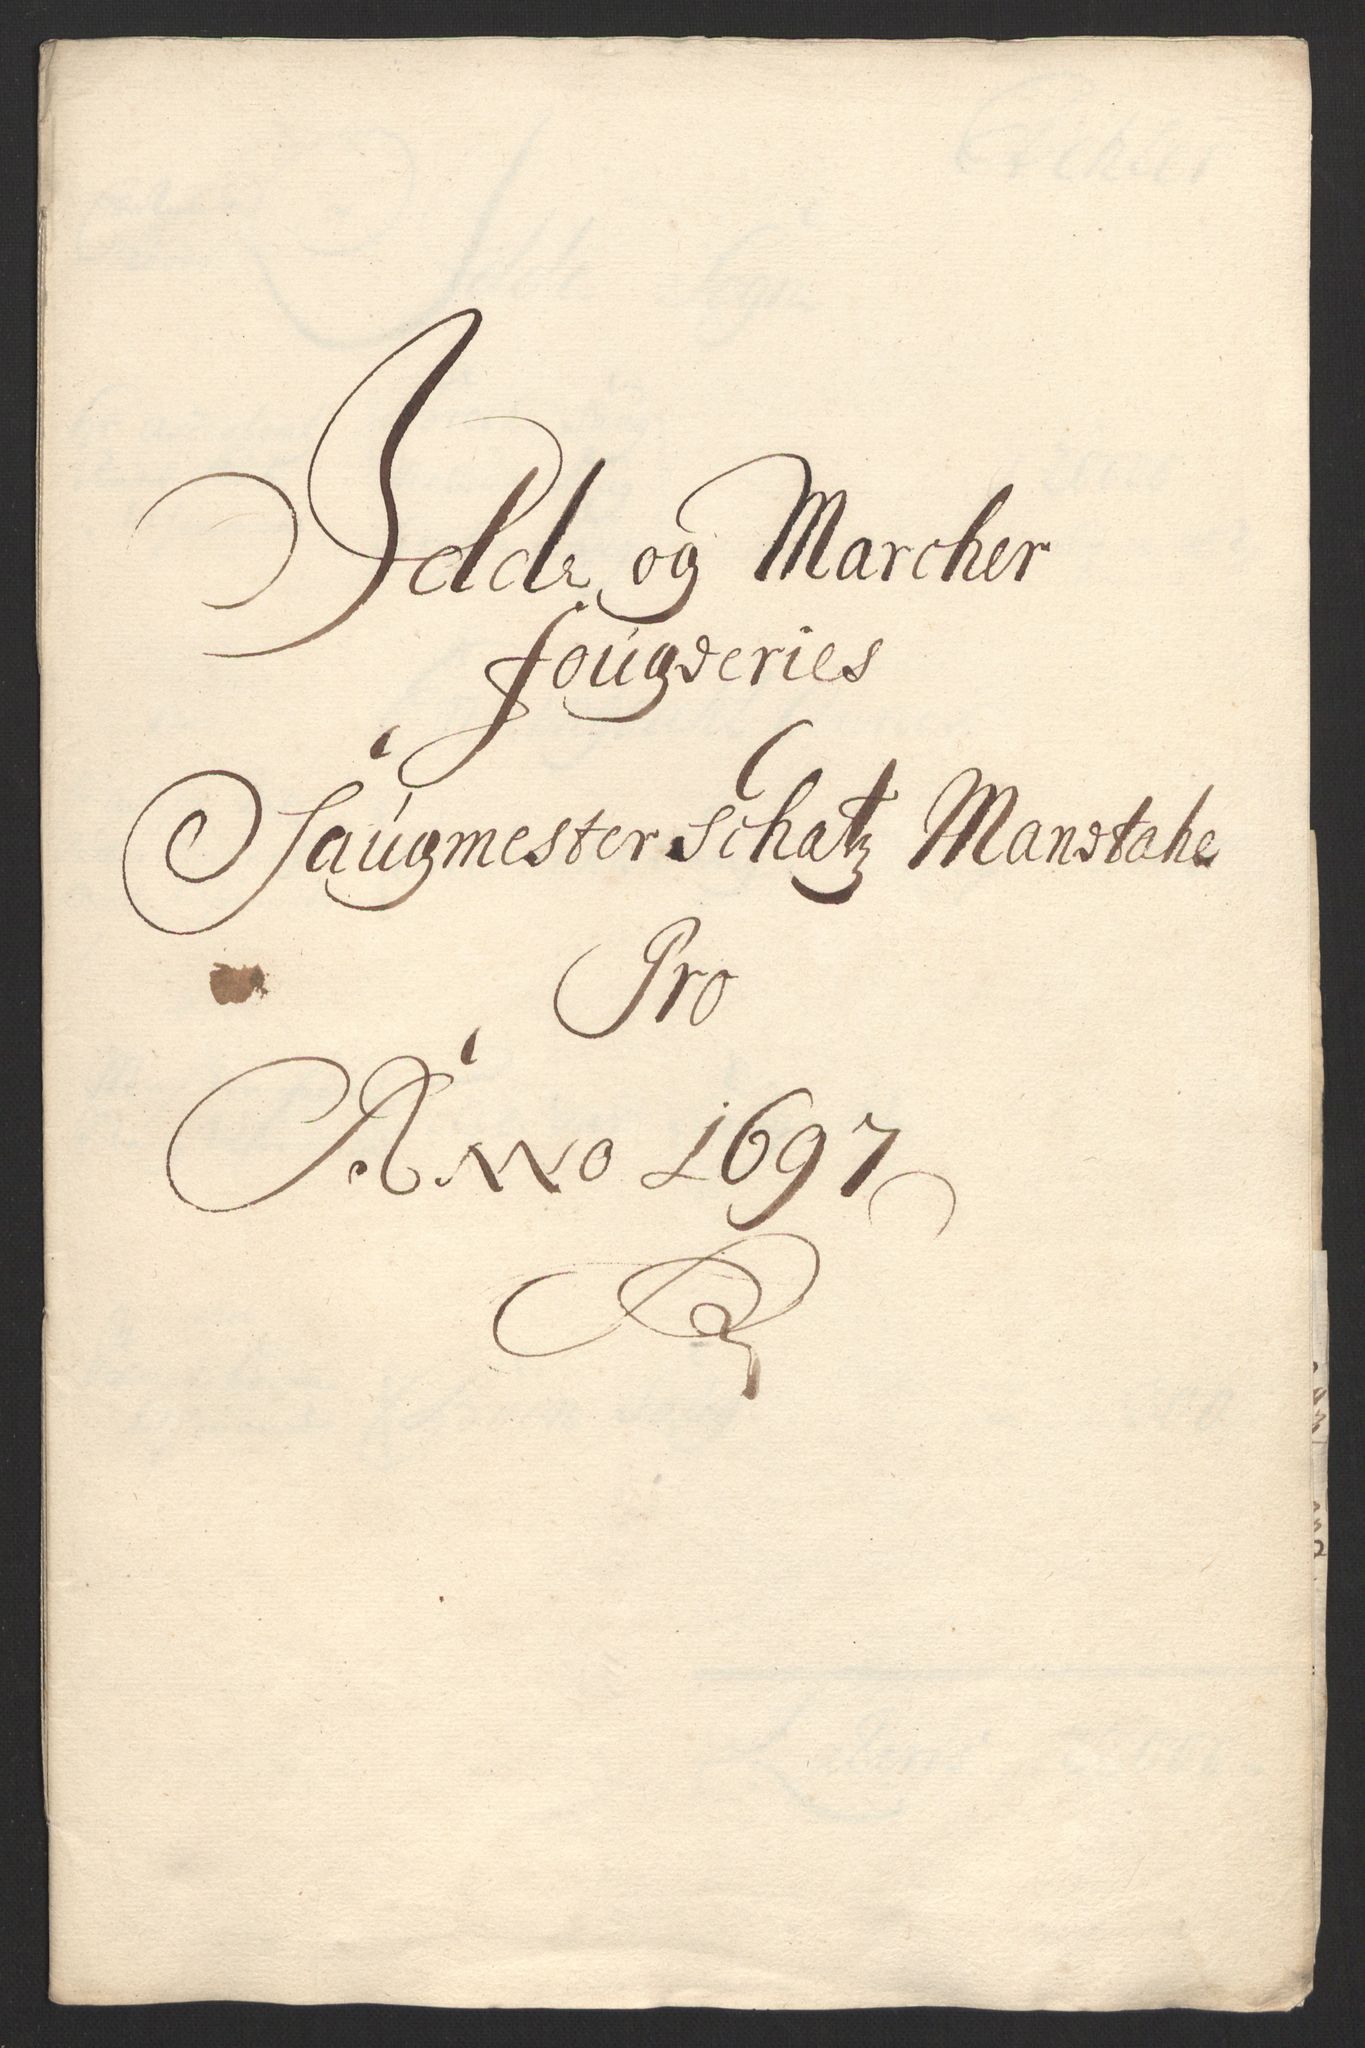 Idde og Marcher
fougderies
Saugmester Schatz Mandtahl
Pro
Anno 1697